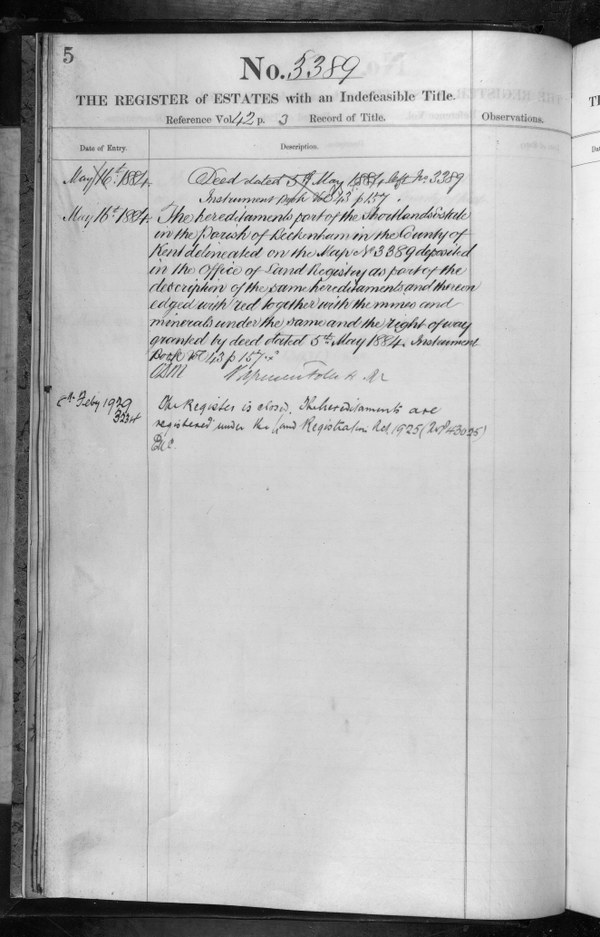 5
No. 3389
THE REGISTER of ESTATES with an Indefeasible Title.
Reference Vol 42 p. 3 Record of Title.
Observations.
Date of Entry.
Description.
May 16th 1884 Deed dated 5th May 1884 No. 3389
Instrument Book Vol 43 p 157.
May 16th 1884. The hereditaments part of the Shortlands Estate
in the Parish of Beckenham in the County of
Kent delineated on the Map No 3389 deposited
in the Office of Land Registry as part of the
description of the same hereditaments and thereon
edged with red together with the mines and
minerals under the same and the right of way
granted by deed dated 5th May 1884. Instrument
Book Vol 43 p 157.
Feby 1929 The Register is closed. The hereditaments are
3234 registered under the Land Registration Act 1925